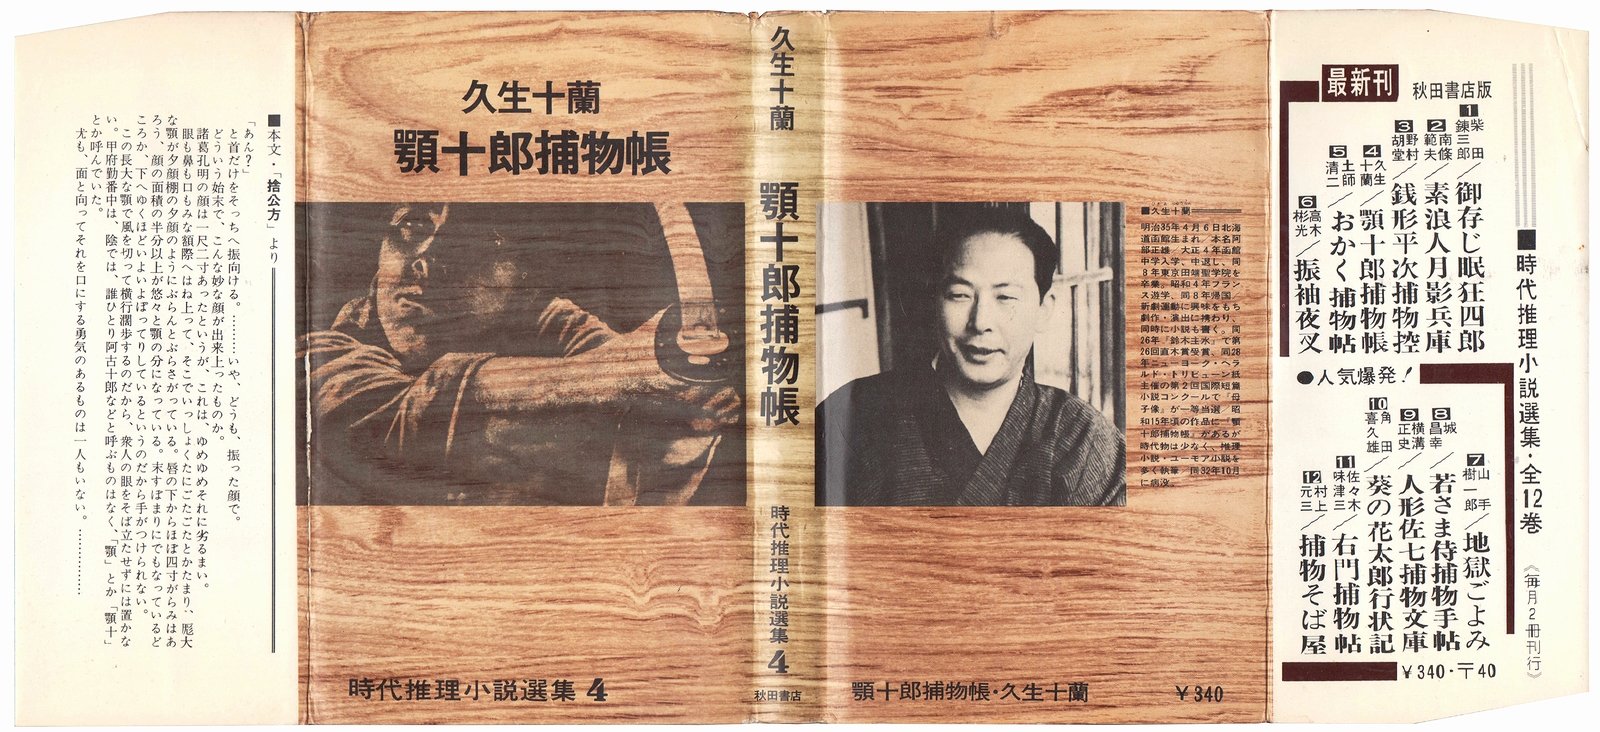 ■本文・「捨公方」より
「あん？」
と首だけをそっちへ振向ける。………いや、どうも、振った顔で。
どういう始末で、こんな妙な顔が出来上ったものか。
諸葛孔明の顔は一尺二寸あったというが、これは、ゆめゆめそれに劣るまい。
眼も鼻も口もみな額際へはね上って、そこでいっしょくたにごたごたとかたまり、厖大
な顎が夕顔棚の夕顔のようにぶらんとぶらさがっている。唇の下からほぼ四寸がらみはあ
ろう、顔の面積の半分以上が悠々と顎の分になっている。末すぼまりにでもなっているど
ころか、下へゆくほどいよいよぽってりしているというのだから手がつけられない。
この長大な顎で風を切って横行濶歩するのだから、衆人の眼をそば立たせずには置かな
い。甲府勤番中は、陰では、誰ひとり阿古十郎などと呼ぶものはなく、「顎」とか「顎十」
とか呼んでいた。
尤も、面と向ってそれを口にする勇気のあるものは一人もいない。…………
久生十蘭
顎十郎捕物帳
時代推理小説選集 4
久生十蘭
顎十郎捕物帳
時代推理小説選集
4
秋田書店
■久生十蘭
明治35年4月6日北海
道函館生まれ 本名阿
部正雄 大正4年函館
中学入学、中退し、同
8年東京田端聖学院を
卒業。昭和4年フラン
ス遊学、同8年帰国。
新劇運動に興味をもち
劇作・演出に携わり、
同時に小説も書く。同
26年『鈴木主水』で第
26回直木賞受賞、同28
年ニューヨーク・ヘラ
ルド・トリビューン紙
主催の第2回国際短篇
小説コンクールで『母
子像』が一等当選 昭
和15年頃の作品に『顎
十郎捕物帳』があるが
時代物は少なく、推理
小説・ユーモア小説を
多く執筆 同32年10月
に病没。
顎十郎捕物帳・久生十蘭
￥340
■時代推理小説選集・全12巻
《毎月2冊刊行》
最新刊
秋田書店版
1 柴田錬三郎／御存じ眠狂四郎
2 南條範夫／素浪人月影兵庫
3 野村胡堂／銭形平次捕物控
4 久生十蘭／顎十郎捕物帳
5 土師清二／おかく捕物帖
6 高木彬光／振袖夜叉
●人気爆発！
7 山手樹一郎／地獄ごよみ
8 城昌幸／若さま侍捕物手帖
9 横溝正史／人形佐七捕物文庫
10 角田喜久雄／葵の花太郎行状記
11 佐々木味津三／右門捕物帖
12 村上元三／捕物そば屋
￥340・〒40